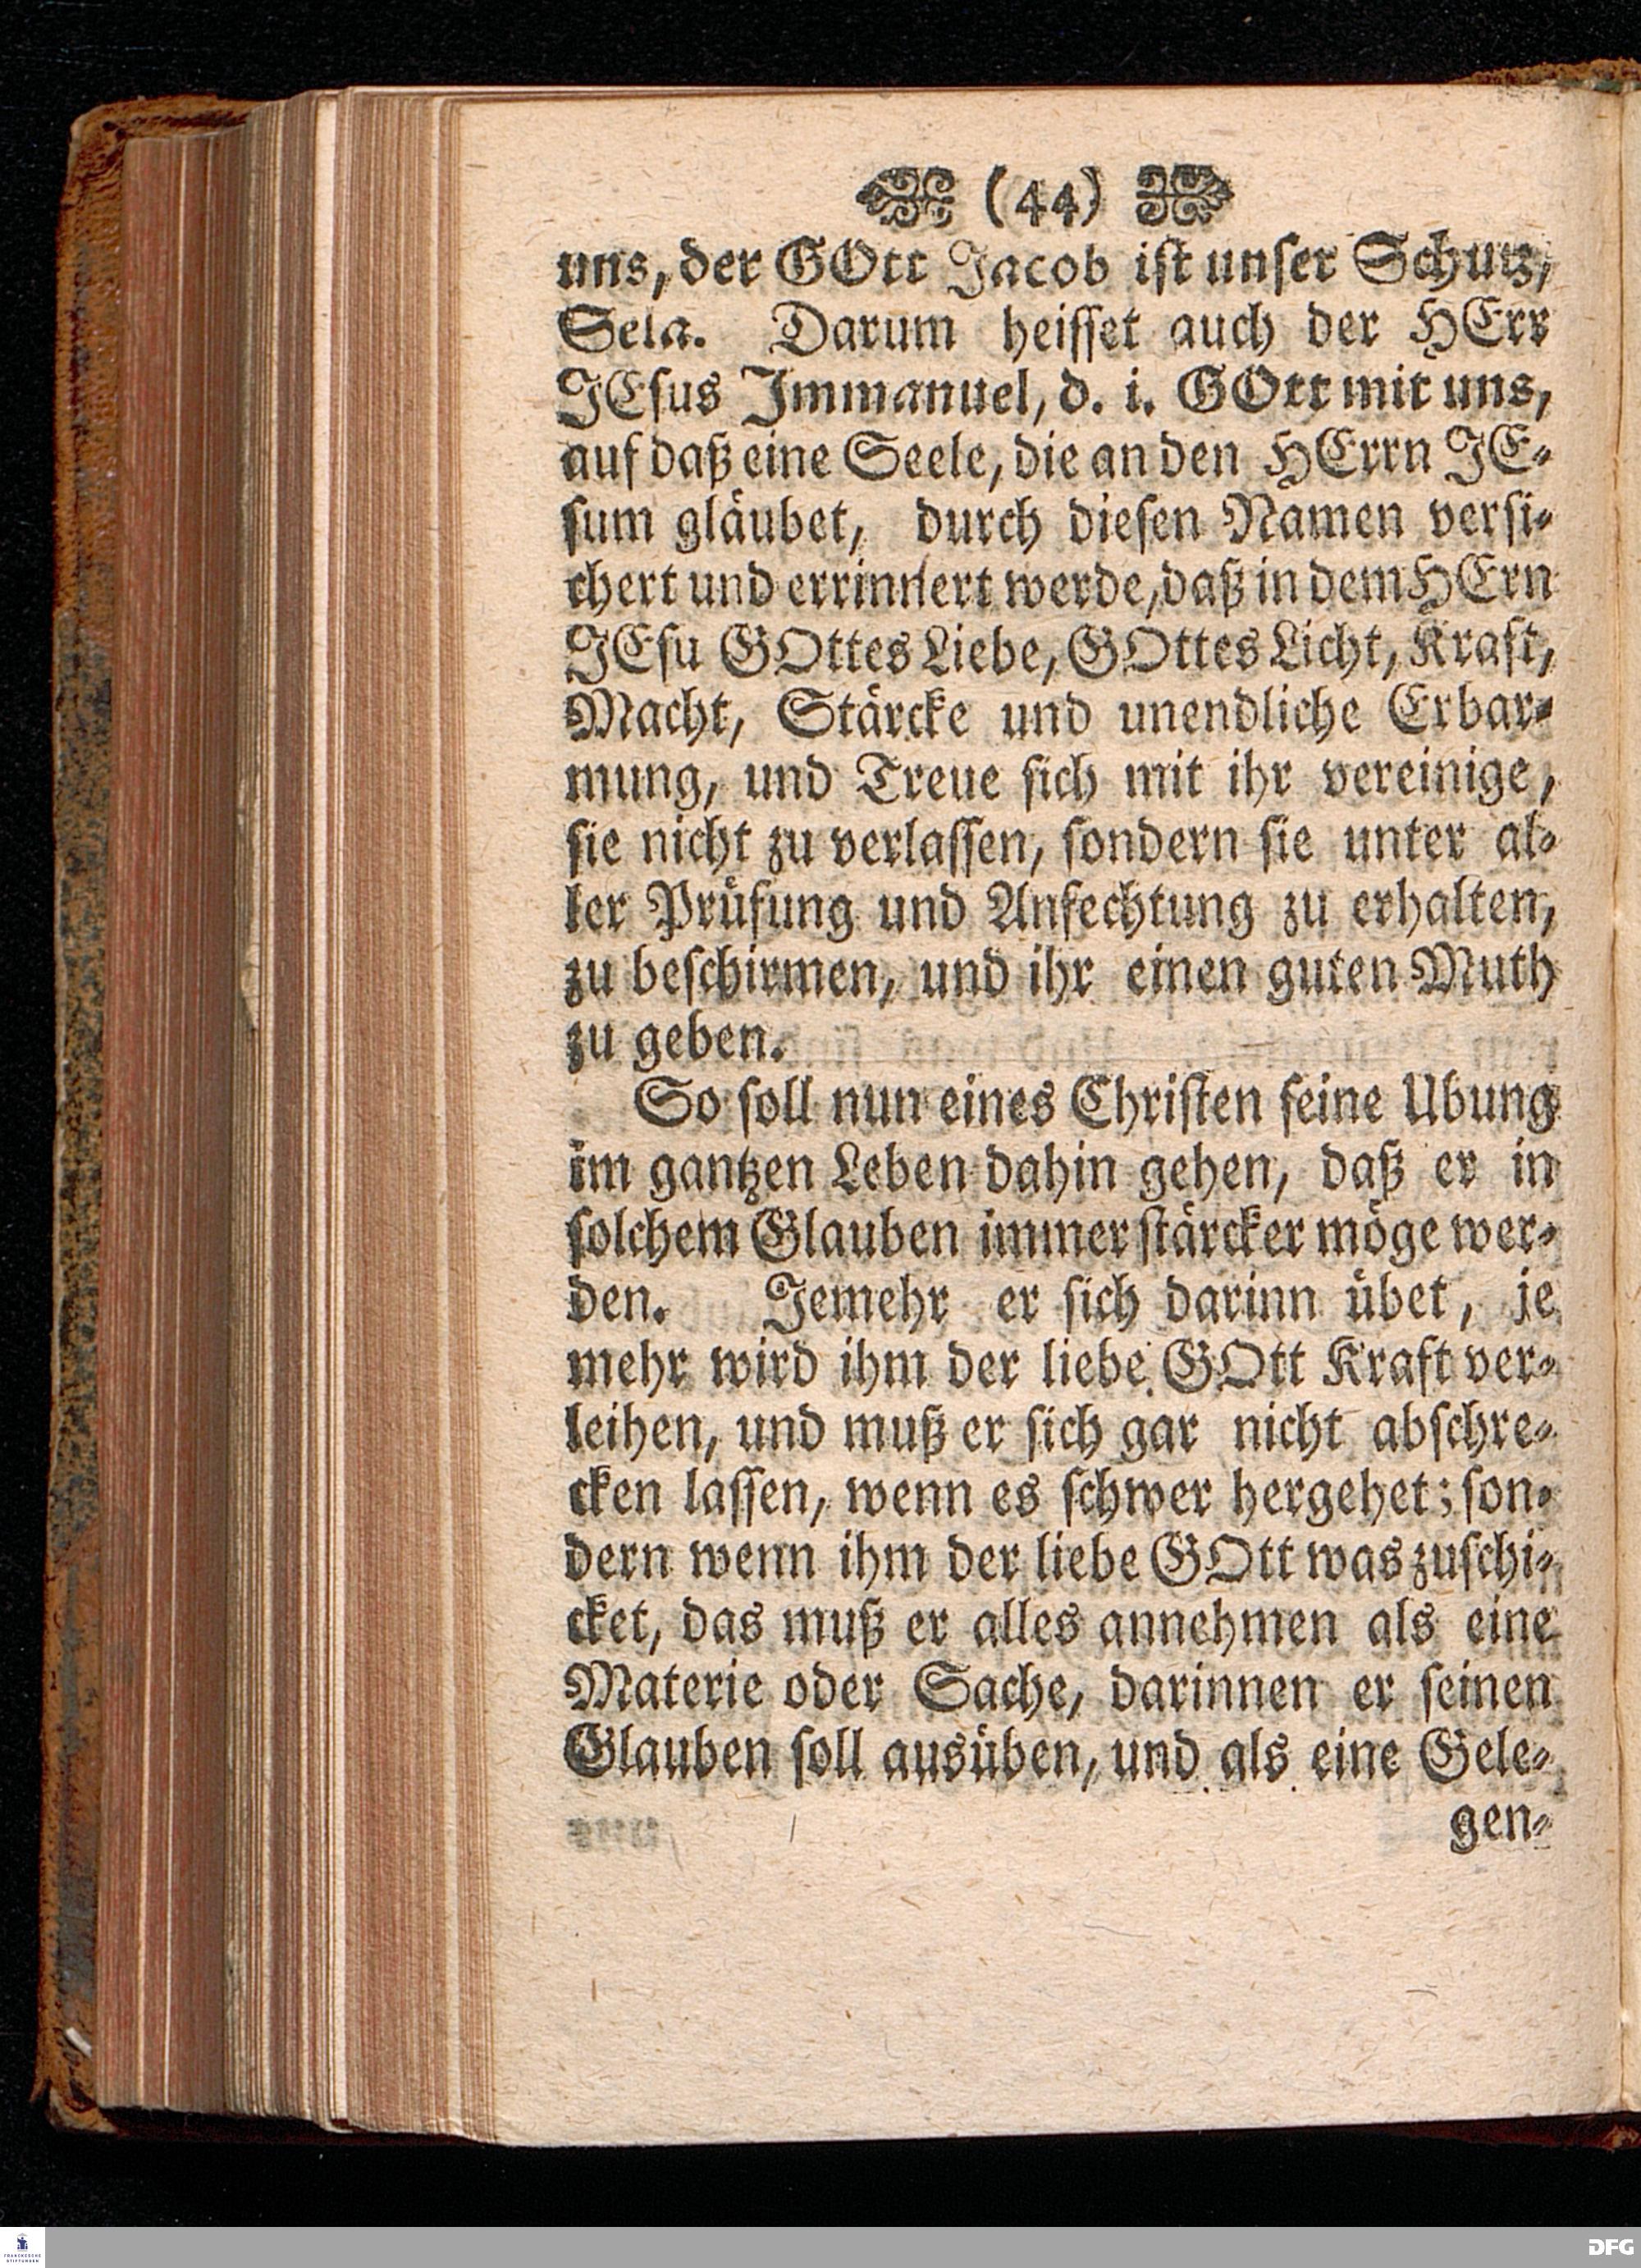 (44)
uns, der GOtt Jacob ist unser Schutz,
Sela. Darum heisset auch der HErr
JEsus Immanuel, d. i. GOtt mit uns,
auf daß eine Seele, die an den HErrn JE-
sum gläubet, durch diesen Namen versi-
chert und errinnert werde, daß in dem HErn
JEsu GOttes Liebe, GOttes Licht, Kraft,
Macht, Stärcke und unendliche Erbar-
mung, und Treue sich mit ihr vereinige,
sie nicht zu verlassen, sondern sie unter al-
ler Prüfung und Anfechtung zu erhalten,
zu beschirmen, und ihr einen guten Muth
zu geben.
So soll nun eines Christen seine Ubung
im gantzen Leben dahin gehen, daß er in
solchem Glauben immer stärcker möge wer-
den. Jemehr er sich darinn übet, je
mehr wird ihm der liebe GOtt Kraft ver-
leihen, und muß er sich gar nicht abschre-
cken lassen, wenn es schwer hergehet; son-
dern wenn ihm der liebe GOtt was zuschi-
cket, das muß er alles annehmen als eine
Materie oder Sache, darinnen er seinen
Glauben soll ausüben, und als eine Gele-
gen-
FRANCKESCHE
STIFTUNGEN
DFG